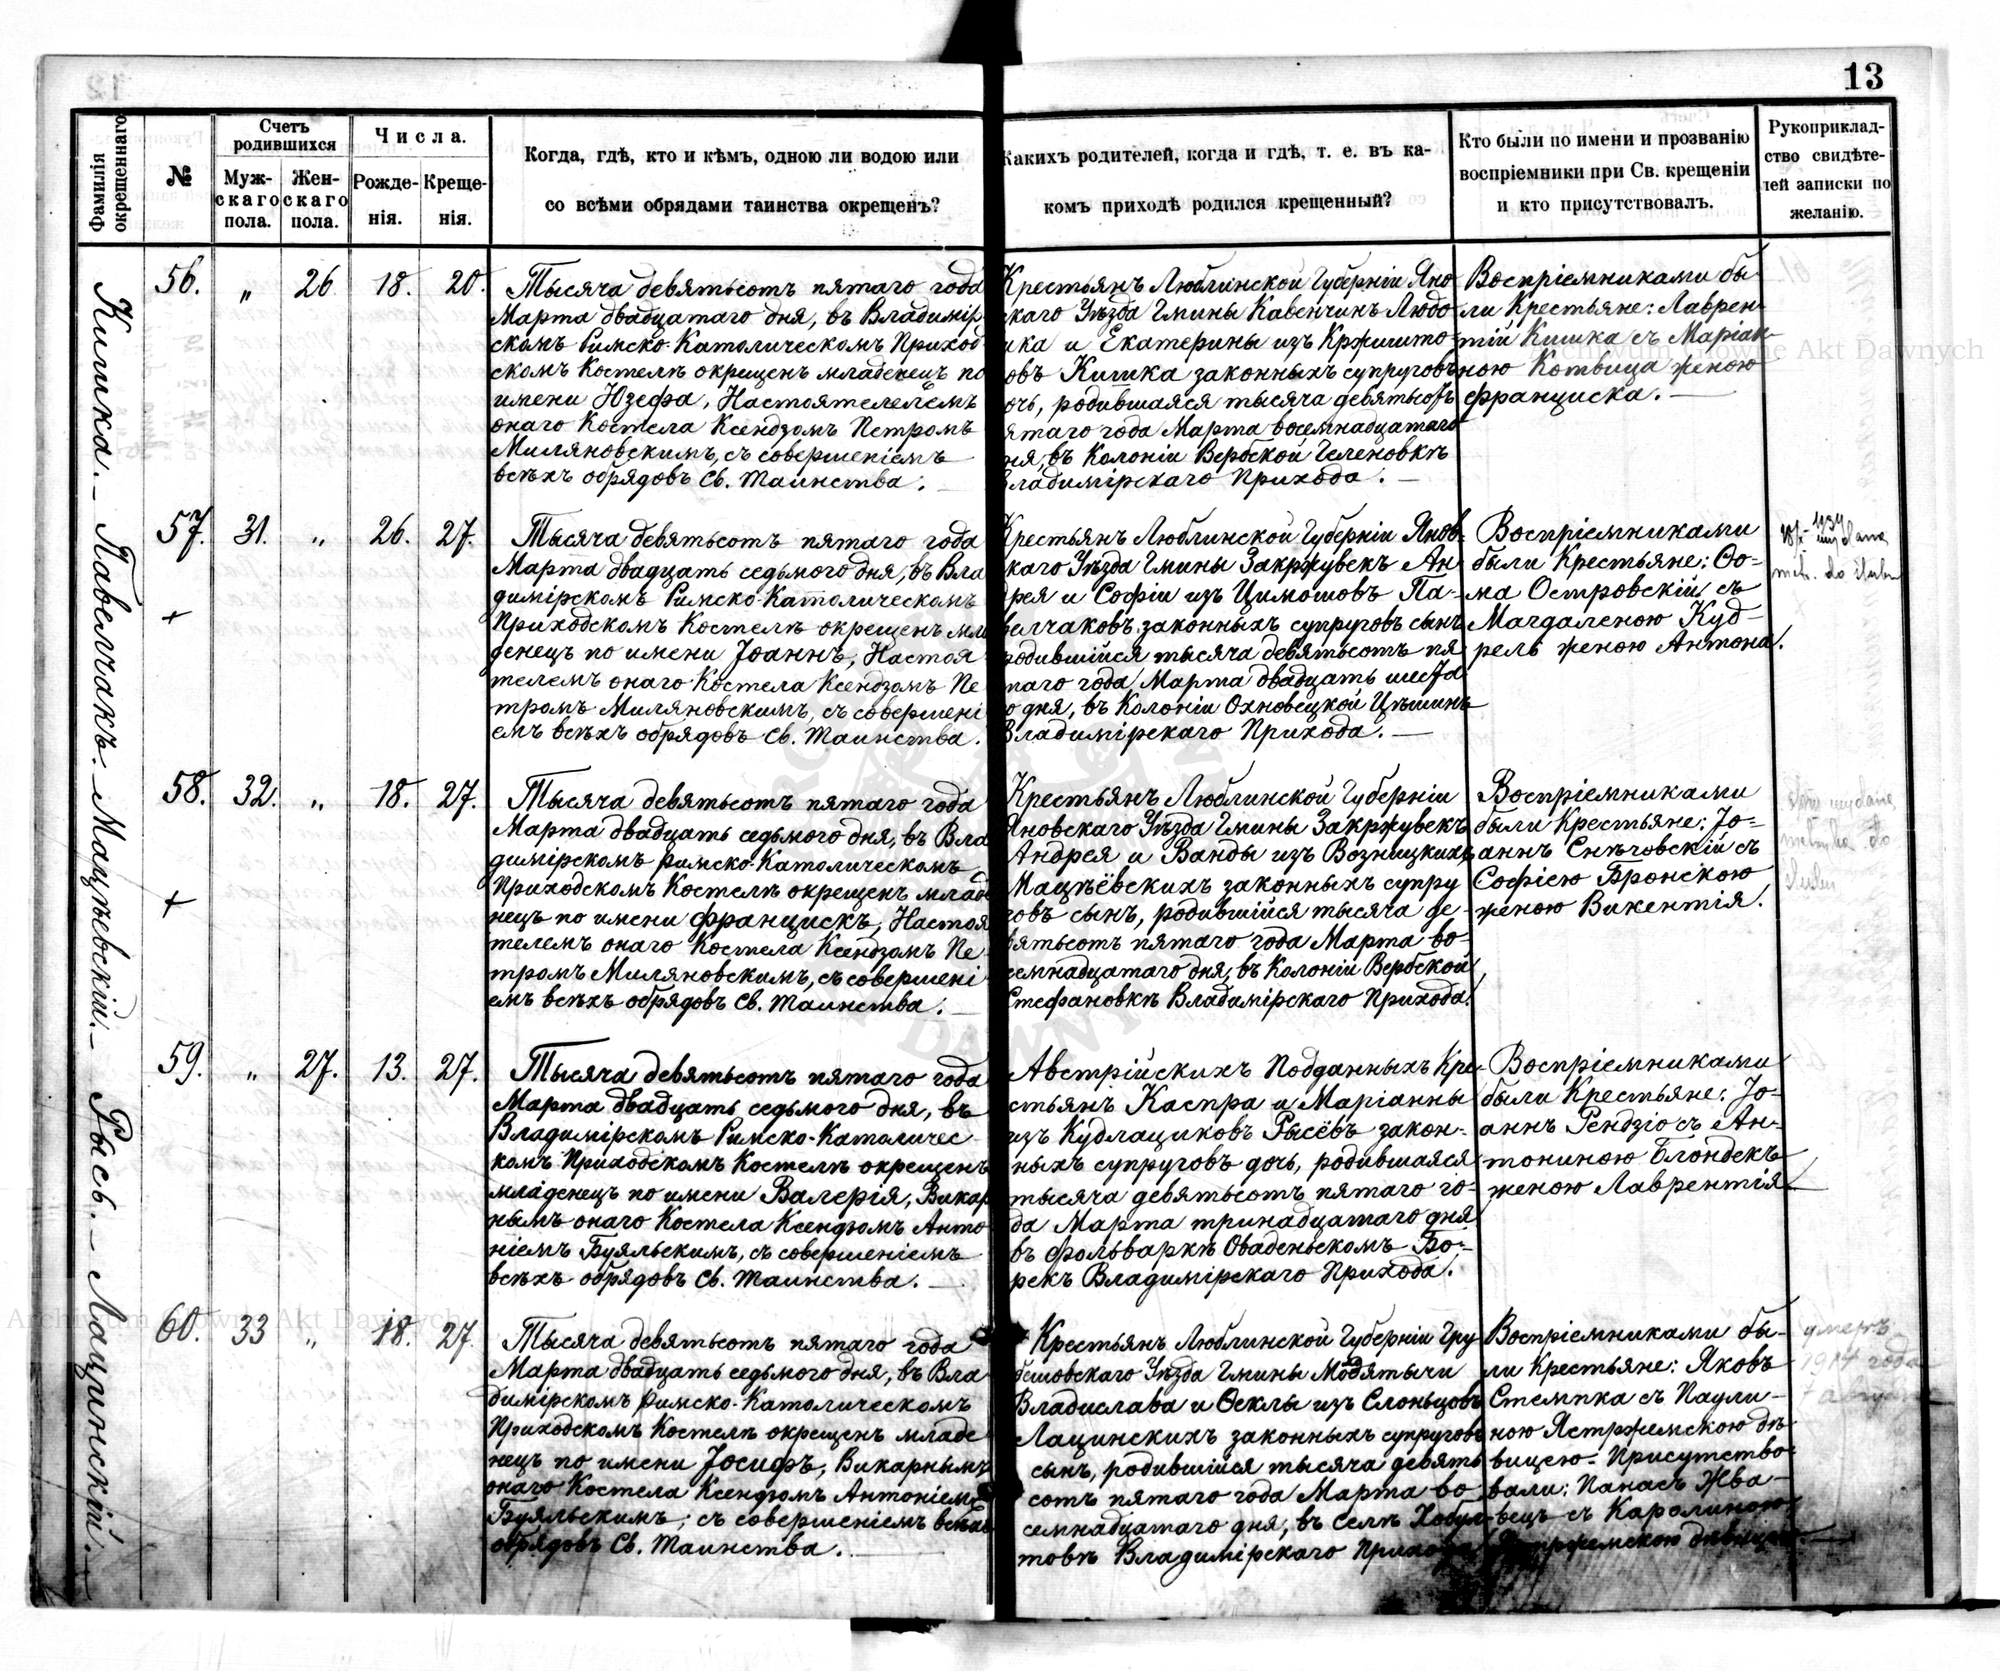 13
Фамилія окрещеннаго
№
Счетъ родившихся
Муж-
скаго
пола.
Жен-
скаго
пола.
Числа.
Рожде-
нія.
Креще-
нія.
Когда, гдѣ, кто и кѣмъ, одною ли водою или
со всѣми обрядами таинства окрещенъ?
Какихъ родителей, когда и гдѣ, т. е. въ ка-
комъ приходѣ родился крещенный?
Кто были по имени и прозванію
воспріемники при Св. крещеніи
и кто присутствовалъ.
Рукоприклад-
ство свидѣте-
лей записки по
желанію.
Кишка.
56. " 26 18. 20.
Тысяча девятьсотъ пятаго года
Марта двадцатаго дня, въ Владимір-
скомъ Римско-Католическомъ Приход-
скомъ Костелѣ окрещенъ младенецъ по
имени Юзефа, Настоятелелемъ
онаго Костела Ксендзомъ Петромъ
Миляновскимъ, съ совершеніемъ
всѣхъ обрядовъ Св. Таинства.
Крестьянъ Люблинской Губерніи Яно
скаго Уѣзда Гмины Кавенчинъ Людо
ика и Екатерины изъ Кржишто-
овъ Кишка законныхъ супруговъ
очь, родившаяся тысяча девятьсотъ
ятаго года Марта восемнадцатаго
ня, въ Колоніи Вербской Геленовкѣ
Владимірскаго Прихода.
Воспріемниками бы-
ли Крестьяне: Лаврен-
тій Кишка съ Маріан-
ною Котвица женою
Франциска.
Павелчакъ.
57. 31. " 26. 27.
+
Тысяча девятьсотъ пятаго года
Марта двадцать седьмого дня, въ Вла
димірскомъ Римско-Католическомъ
Приходскомъ Костелѣ окрещенъ мла
денецъ по имени Іоаннъ, Настоя
телемъ онаго Костела Ксендзомъ Пе
тромъ Миляновскимъ, съ совершені
емъ всѣхъ обрядовъ Св. Таинства.
Крестьянъ Люблинской Губерніи Янов-
скаго Уѣзда Гмины Закржувекъ Ан-
дрея и Софіи изъ Цимошовъ Па-
велчаковъ законныхъ супруговъ сынъ
родившійся тысяча девятьсотъ пя
таго года Марта двадцать шеста
го дня, въ Колоніи Охновецкой Цѣшинъ
Владимірскаго Прихода.
Воспріемниками
были Крестьяне: Ѳо-
ма Островскій съ
Магдаленою Куд-
рель женою Антона.
Мацѣевскій.
58. 32. " 18. 27.
+
Тысяча девятьсотъ пятаго года
Марта двадцать седьмого дня, въ Вла
димірскомъ Римско-Католическомъ
Приходскомъ Костелѣ окрещенъ младе
нецъ по имени Францискъ, Настоя
телемъ онаго Костела Ксендзомъ Пе
тромъ Миляновскимъ, съ совершені
емъ всѣхъ обрядовъ Св. Таинства.
Крестьянъ Люблинской Губерніи
Яновскаго Уѣзда Гмины Закржувекъ
Андрея и Ванды изъ Возницкихъ
Мацѣёвскихъ законныхъ супру
говъ сынъ, родившійся тысяча де-
вятьсотъ пятаго года Марта во-
семнадцатаго дня, въ Колоніи Вербской
Стефановкѣ Владимірскаго Прихода.
Воспріемниками
были Крестьяне: Іо-
аннъ Снѣговскій съ
Софіею Бронскою
женою Викентія.
Рысь.
59. " 27. 13. 27.
Тысяча девятьсотъ пятаго года
Марта двадцать седьмого дня, въ
Владимірскомъ Римско-Католичес-
комъ Приходскомъ Костелѣ окрещенъ
младенецъ по имени Валерія, Викар
нымъ онаго Костела Ксендзомъ Анто
ніемъ Буяльскимъ, съ совершеніемъ
всѣхъ обрядовъ Св. Таинства.
Австрійскихъ Подданныхъ Кре-
стьянъ Каспра и Маріанны
изъ Кудлациковъ Рысёвъ закон-
ныхъ супруговъ дочь, родившаяся
тысяча девятьсотъ пятаго го-
да Марта тринадцатаго дня
въ Фольваркѣ Оваденьскомъ Бо-
рекъ Владимірскаго Прихода.
Воспріемниками
были Крестьяне: Іо-
аннъ Рендзіо съ Ан-
тониною Блондекъ
женою Лаврентія
Лацинскій.
60. 33 " 18. 27.
Тысяча девятьсотъ пятаго года
Марта двадцать седьмого дня, въ Вла
димірскомъ Римско-Католическомъ
Приходскомъ Костелѣ окрещенъ младе
нецъ по имени Іосифъ, Викарнымъ
онаго Костела Ксендзомъ Антоніемъ
Буяльскимъ, съ совершеніемъ всѣхъ
обрядовъ Св. Таинства.
Крестьянъ Люблинской Губерніи Гру
бешовскаго Уѣзда Гмины Модятычи
Владислава и Ѳеклы изъ Слоньцовъ
Лацинскихъ законныхъ супруговъ
сынъ, родившійся тысяча девять
сотъ пятаго года Марта во-
семнадцатаго дня, въ Селѣ Хобул-
товѣ Владимірскаго Прихода
Воспріемниками бы-
ли Крестьяне: Яковъ
Стемпка съ Паули-
ною Ястржемскою дѣ-
вицею. Присутство-
вали: Панасъ Жва-
вецъ съ Каролиною
дѣвицею.
умеръ
1914 года
Archiwum Główne Akt Dawnych
Archiwum Główne Akt Dawnych